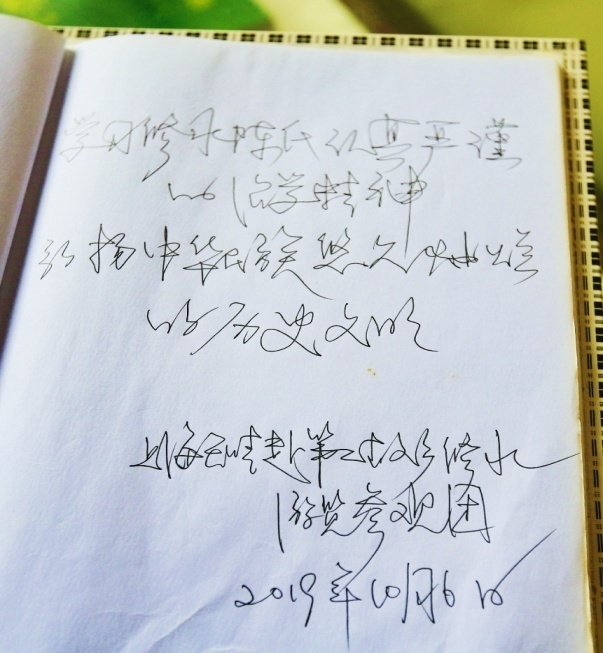 学习修水陈氏认真严谨
的治学精神
弘扬中华民族悠久灿烂
的历史文明
上海赴第二故乡修水
游览参观团
2019年10月6日